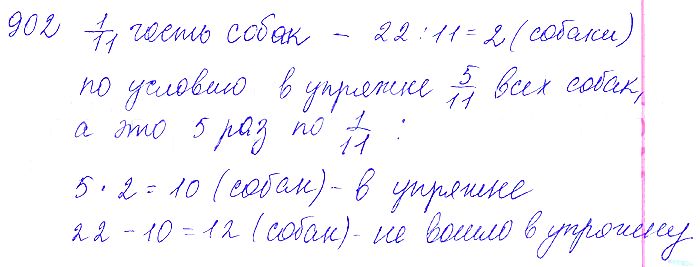 902 1/11 часть собак – 22 : 11 = 2 (собаки)
по условию в упряжке 5/11 всех собак,
а это 5 раз по 1/11 :
5 · 2 = 10 (собак) – в упряжке
22 – 10 = 12 (собак) – не вошло в упряжку